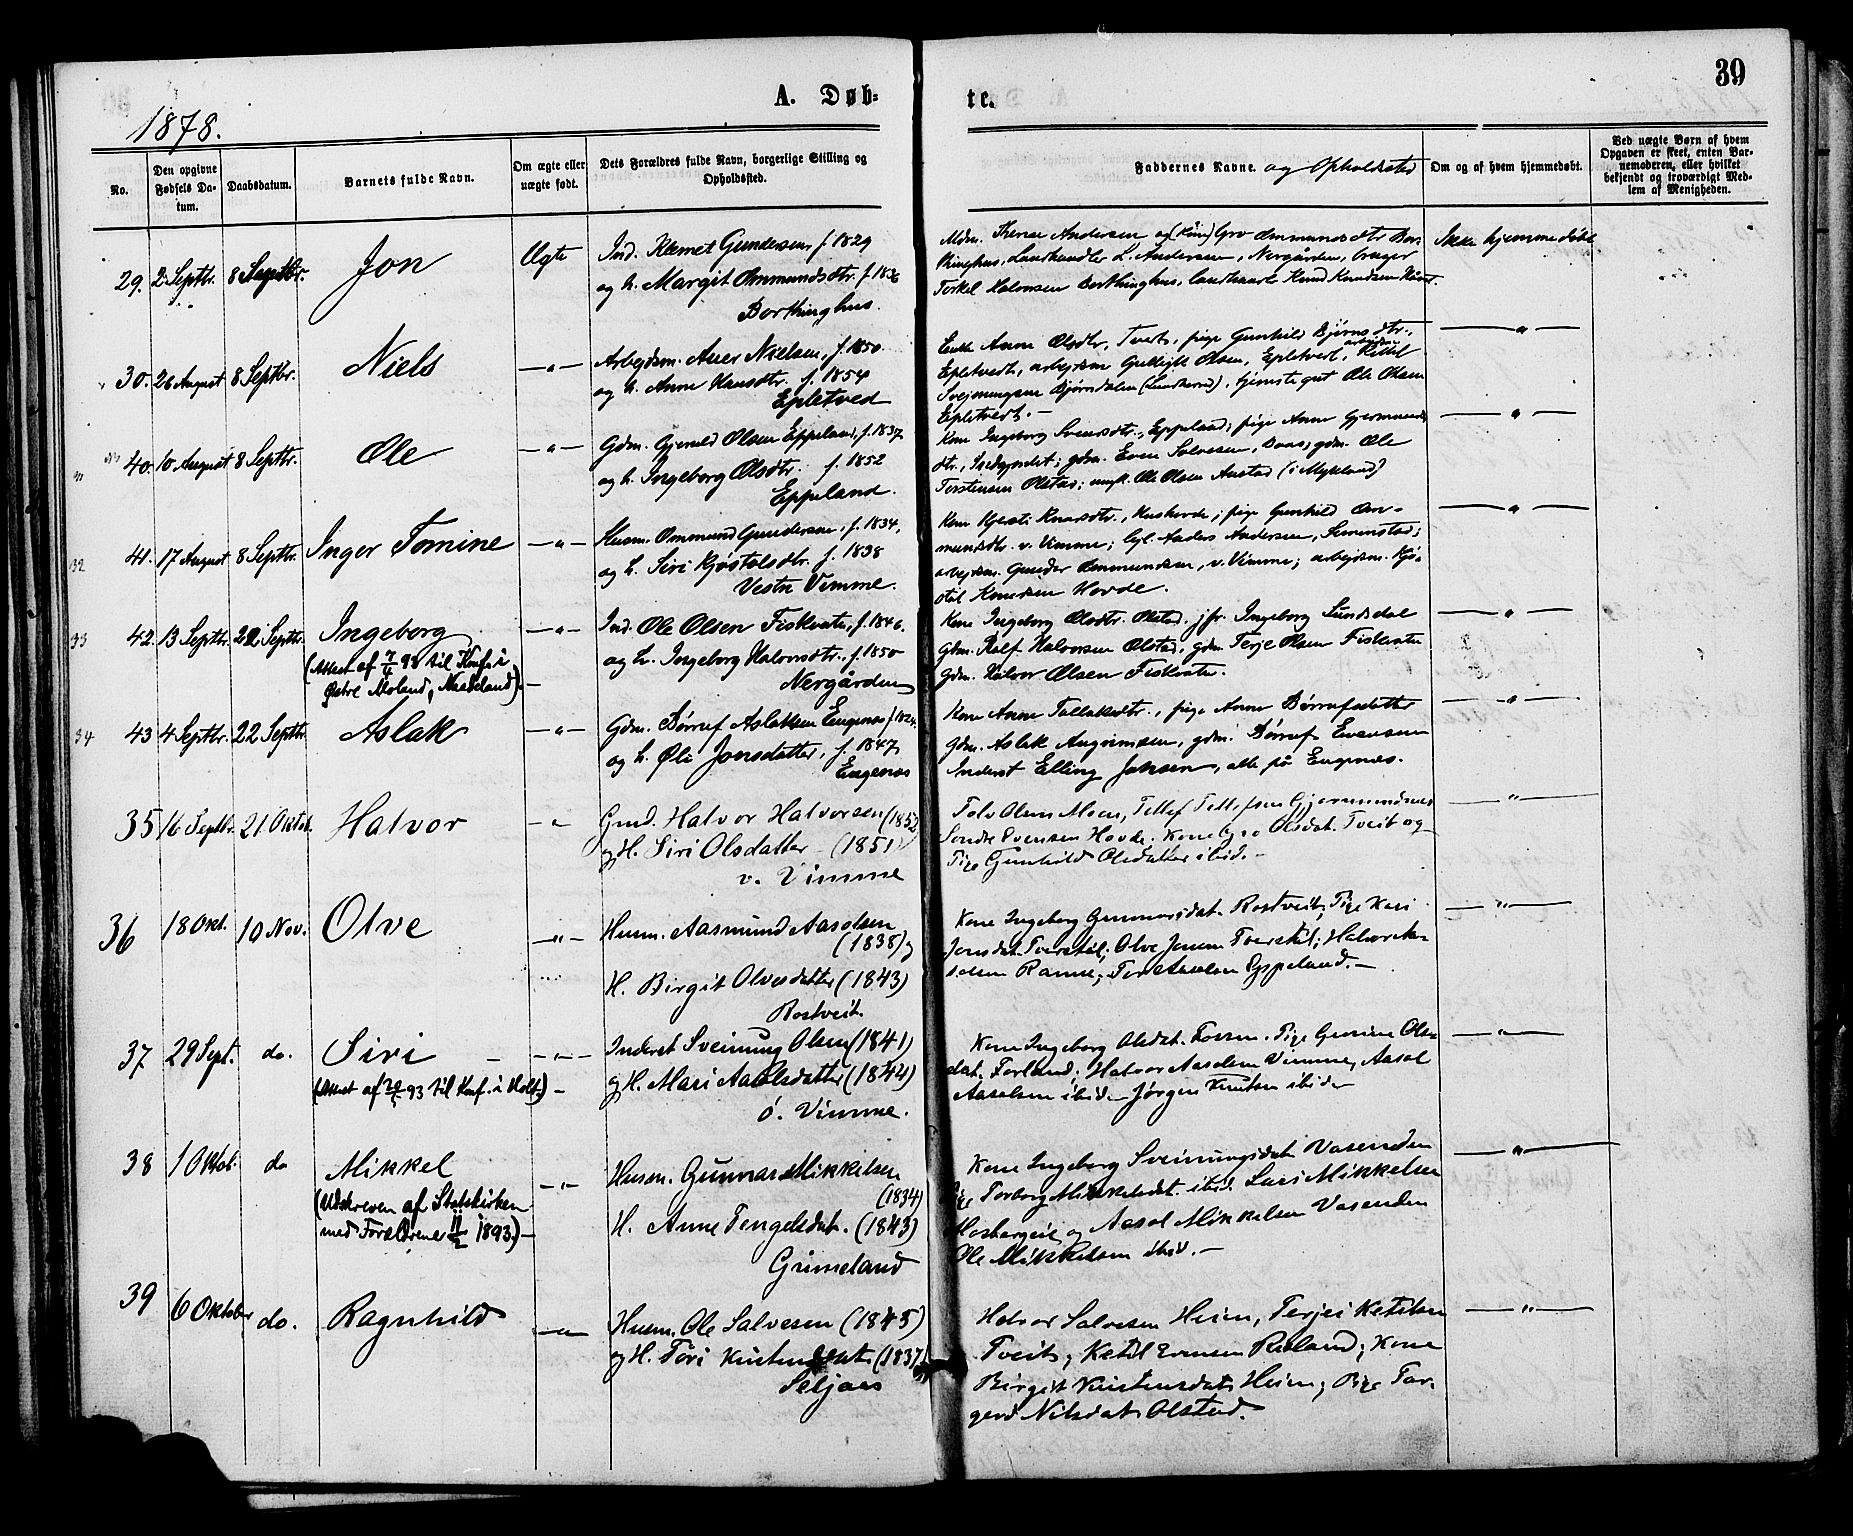 39
A. Døb-
te.
1878.
No.
Den opgivne Fødsels Datum.
Daabsdatum.
Barnets fulde Navn.
Om ægte eller uægte født.
Dets Forældres fulde Navn, borgerlige Stilling og Opholdssted.
Faddernes Navne. og Opholdssted
Om og af hvem hjemmedøbt.
Ved uægte Børn af hvem
Opgaven er skeet, enten Bar-
nemoderen, eller hvilket
bekjendt og troværdigt Med-
lem af Menigheden.
29. 2 Septbr. 8 Septbr. Jon Ægte
Ind. Gundersen, f. 1829
og h. Margit Ommundsdtr. f. 1836
Borkinghus.
Andersen og Gro Ommundsdtr
Landhandler Andersen, Nergården,
Torkel Halvorsen Knud Knudsen
Ikke hjemmedøbt
30. 26 August 8 Septbr. Niels —"—
Arbejdsm. Nielsen, f. 1850
og h. Anne Hansdtr. f. 1854
Epletved
Anne Olsdtr, Tveit, pige Gunhild Bjørnsdtr.
Epletvedt, arbejdsm Olsen, Epletvedt, Kittel
Bjørnsdalen Ole Olsen
Epletvedt. —
—"—
40. 10 August 8 Septbr. Ole —"—
Gdm. Gjeruld Olsen Eppeland, f. 1837
og h. Ingeborg Olsdtr. f. 1852
Eppeland.
Kone Ingeborg Eppeland; pige Anne Gjermunds
dtr., gdm. Even Salvesen, gdm. Ole
Torstensen Olstad; ungk. Ole Olsen Austad (i Mykland)
—"—
32
41. 17 August 8 Septbr. Inger Tomine —"—
Husm. Ommund Gundersen, f. 1834,
og h. Siri Kjøstolsdtr. f. 1838
Vestre Vimme.
Kone Kjersti Knudsdtr., pige Gunhild Om-
mundsdtr. v. Vimme; Anders Andersen,
arbejdsm. Gunder Ommundsen, v. Vimme; arbejdsm. Kjø-
stol Knudsen Hovde.
—"—
33
42. 13 Septbr. 22 Septbr. Ingeborg —"—
(Attest af 93 til Konf. i
Østre Moland, Nedeland). —
Ind. Ole Olsen Fiskvatn, f. 1846.
og h. Ingeborg Halvorsdtr., f. 1850
Nergården
Kone Ingeborg Olsdtr. Olstad. jfr. Ingeborg Lundsdal
gdm. Rolf Halvorsen Olstad, gdm Terje Olsen Fiskvatn
gdm. Halvor Olsen Fiskvatn.
—"—
34
43 4 Septbr. 22 Septbr. Aslak —"—
Gdm. Børruf Aslaksen Engenes f. 1824.
og h. Øli Jonsdatter, f. 1847
Engenes
Kone Anne Tallaksdtr., pige Anne Børrufsdatter
Gdm. Aslak Angrimsen, gdm. Børruf Evensen
Inderst Elling Johsen, alle på Engenes.
—"—
35 16 Septbr. 21. Oktob. Halvor —"—
Gmd. Halvor Halvorsen (1852
og H. Siri Olsdatter - (1851)
v. Vimme
Tolv Olsen Moen, Tellef Tellefsen
Sondre Svensen Hovde; Kone Gro Olsdat. Tveit og
Pige Gunhild Olsdatter ibid. —
—"—
36 18 Okt. 10 Nov. Olve —"—
Husm. Aasmund Aasolsen
(1838) og
H. Birgit Olvesdatter (1843)
Rostveit.
Kone Ingeborg Gunnarsdat. Rostveit; Pige Kari
Jonsdat. Tverstøl; Olve Jonsen Tverstøl; Halvor Aa-
solsen Ramse; Tor Aasolsen Eppeland. —
—"—
37 29 Sept. do. Siri —"—
(Attest af 93 til Konf. i Holt) —
Inderst Sveinung Olsen (1841)
og H. Mari Aasolsdatter (1844)
ø. Vimme.
Kone Ingeborg Olsdat. Fossen. Pige Gunine Ols-
dat. Forland; Halvor Aasolsen Vimme, Aasol
Aasolsen ibid. Jørgen Knutsen ibid.
—"—
38 1 Oktob. do Mikkel —"—
(Udskreven af Statskirken
med Forældrene 1893.) —
Husm. Gunnar Mikkelsen
(1834)
H. Anne Tengelsdat. (1843)
Grimeland
Kone Ingeborg Sveinungsdat. Vasenden
Pige Torborg Mikkelsdat. ibid. Lars Mikkelsen
og Aasol Mikkelsen Vasenden
Ole Mikkelsen ibid. —
—"—
39 6 Oktober do. Ragnhild —"—
Husm. Ole Salvesen (1845)
og H. Tori Kristensdat. (1837)
Seljaas
Halvor Salvesen Heim, Terjei Ketilsen
Tveit; Ketil Evensen Risland; Kone
Birgit Kristensdat. Heim; Pige Tar-
gerd Nilsdat. Olstad.
—"—